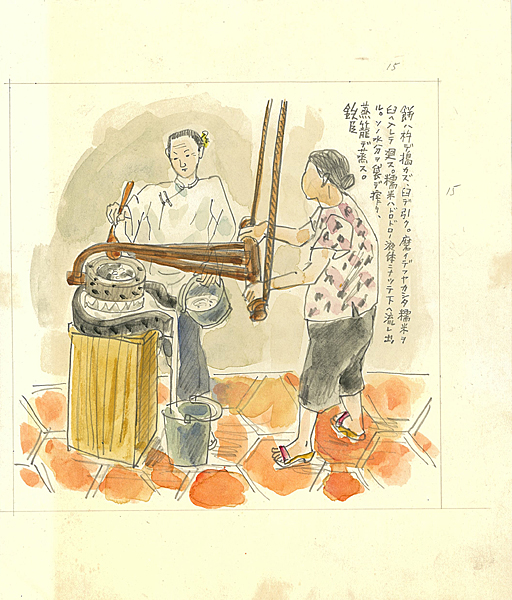 15
餅ハ杵デ搗カズ、臼デ引ク。磨イデフヤカシタ糯米ヲ
臼ヘ入レテ廻ス。糯米ハドロドロノ液体ニナツテ下ヘ流レ出
ル。ソノ水分ヲ袋デ搾リ、
蒸籠デ蒸ス。
鉄臣
15